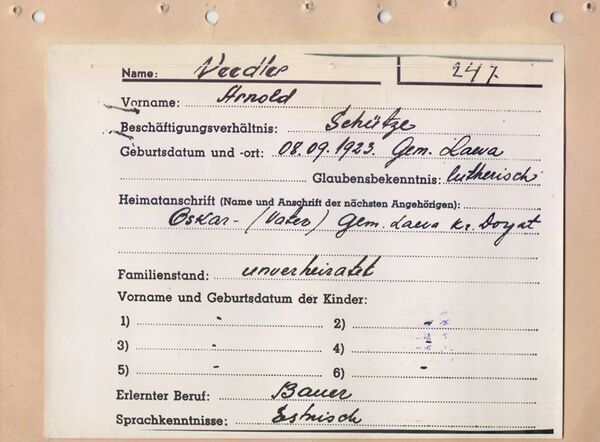 Name: Veedler 247.
Vorname: Arnold
Beschäftigungsverhältnis: Schütze
Geburtsdatum und -ort: 08.09.1923. Gem. Laeva
Glaubensbekenntnis: lutherisch
Heimatanschrift (Name und Anschrift der nächsten Angehörigen):
Oskar - (Vater) Gem. Laeva Kr. Dorpat
Familienstand: unverheiratet
Vorname und Geburtsdatum der Kinder:
1) - 2) -
3) - 4) -
5) - 6) -
Erlernter Beruf: Bauer
Sprachkenntnisse: Estnisch